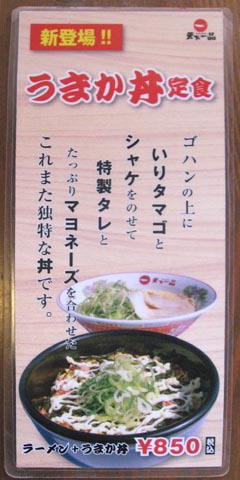 新登場!!
天下一品
うまか丼定食
ゴハンの上に
いりタマゴと
シャケをのせて
特製タレと
たっぷりマヨネーズを合わせた、
これまた独特な丼です。
天下一品
ラーメン+うまか丼 ¥850 税込